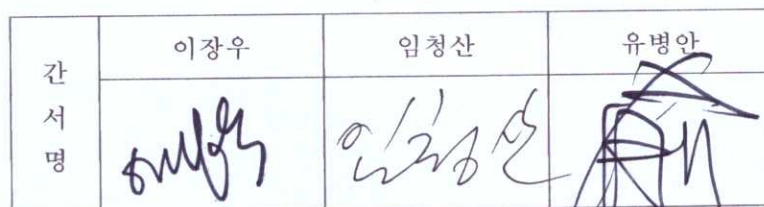 간서명
이장우 임청산 유병안
임청산